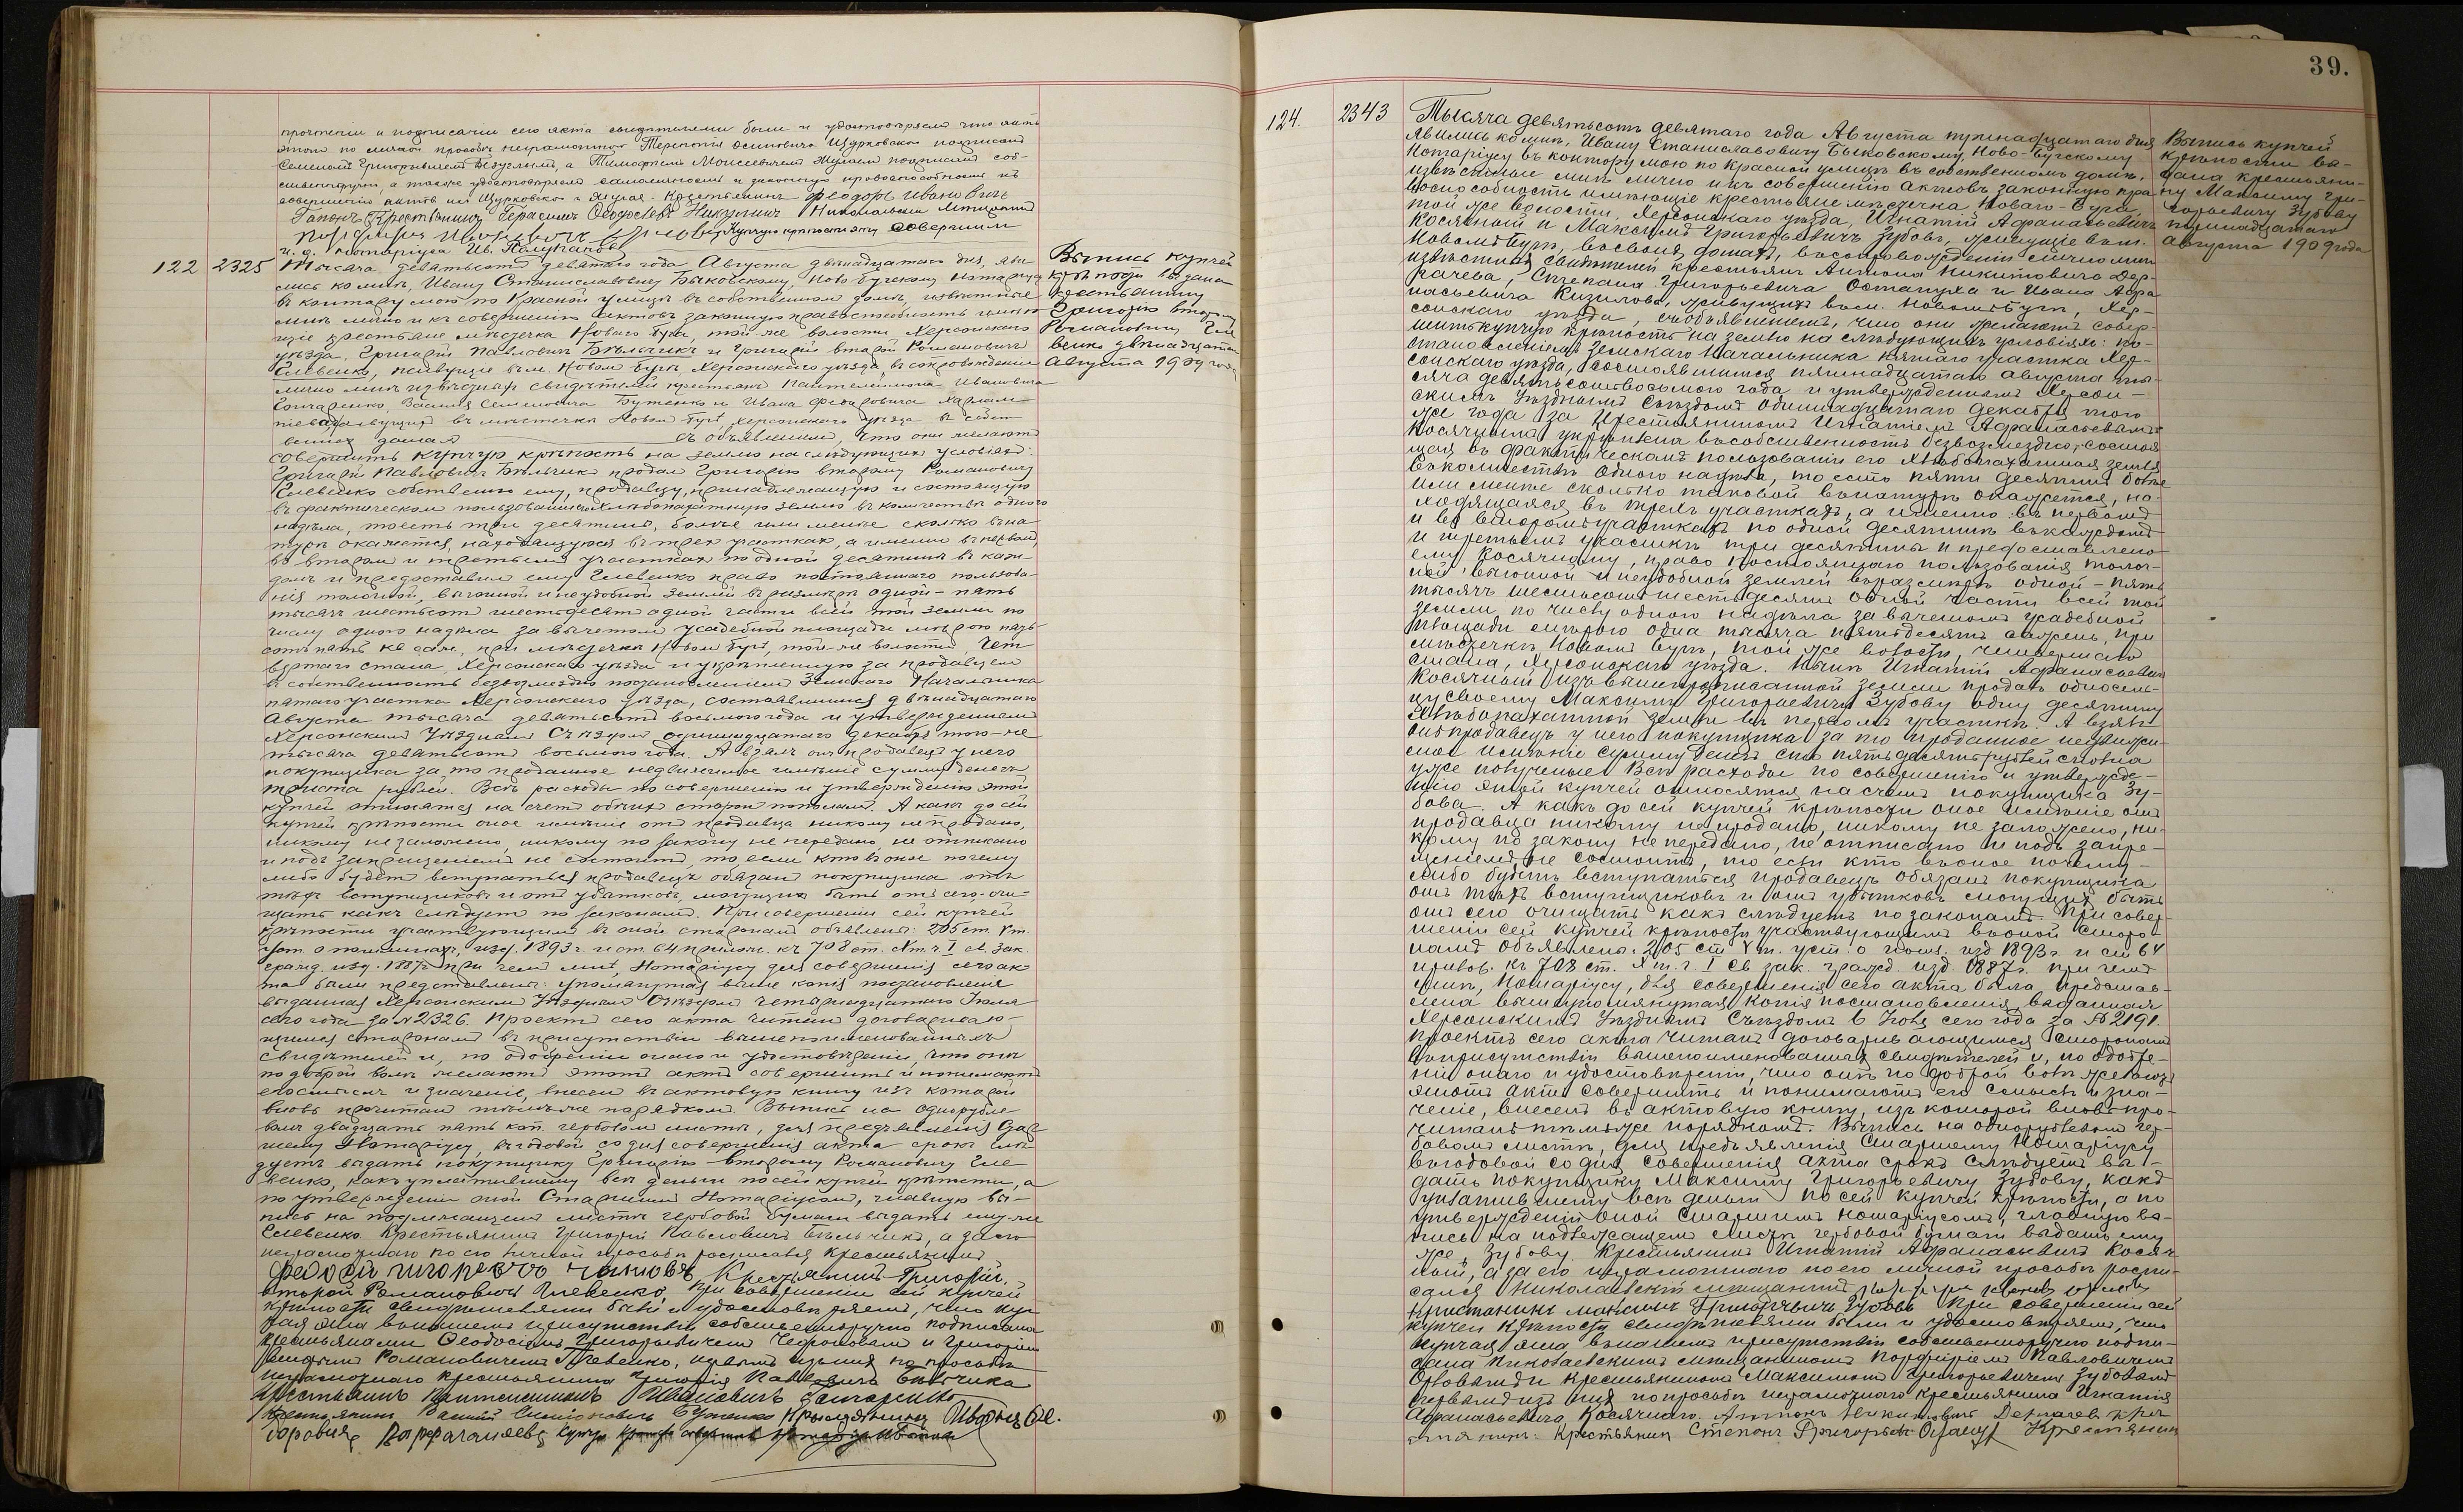 прочтеніи и подписаніи сего акта свидѣтелями были и удостовѣряемъ что актъ
этотъ по личной просьбѣ неграмотнаго Терентія Осиповича Щурковскаго подписанъ
Семеномъ Григорьевичемъ а Тимофеемъ Моисеевичемъ подписанъ соб-
ственноручно, а также удостовѣряемъ самоличность и законную правоспособность къ
совершенію актовъ Щурковскаго и Крестьянинъ Феодоръ Ивановичъ
Гапонъ Крестьянинъ Герасимъ Никулинъ Николаевскій Мѣщанинъ
Купчую крѣпость эту совершилъ
и. д. Нотаріуса Ив.
122 2325 Тысяча девятьсотъ девятаго года Августа двѣнадцатаго дня, яви
лись ко мнѣ, Ивану Станиславовичу Быковскому, Ново-Бугскому Нотаріусу
въ контору мою по Красной улицѣ въ собственномъ домѣ, извѣстные
мнѣ лично и къ совершенію актовъ законную правоспособность имѣю
щіе крестьяне мѣстечка Новаго Буга, той-же волости Херсонскаго
уѣзда, Григорій Павловичъ Бѣльчикъ и Григорій второй Романовичъ
Глевенко, живущіе въ м. Новомъ Бугѣ, Херсонскаго уѣзда, въ сопровожденіи
лично мнѣ извѣстныхъ свидѣтелей крестьянъ Пантелеимона Ивановича
Гончаренко, Василія Семеновича Бутенко и Ивана Федоровича
живущихъ въ мѣстечкѣ Новомъ Бугѣ, Херсонскаго уѣзда въ собст
венныхъ домахъ съ объявленіемъ, что они желаютъ
совершить купчую крѣпость на землю на слѣдующихъ условіяхъ:
Григорій Павловичъ Бѣльчикъ продалъ Григорію второму Романовичу
Глевенко собственно ему, продавцу, принадлежащую и состоящую
въ фактическомъ пользованіи хлѣбопахатную землю въ количествѣ одного
надѣла, тоесть три десятины, болѣе или менѣе сколько въ на
турѣ окажется, находящуюся въ трехъ участкахъ, а именно въ первомъ,
во второмъ и третьемъ участкахъ по одной десятинѣ въ каж-
домъ и предоставилъ ему Глевенко право постояннаго пользова
нія толочной, выгонной и неудобной землей въ размѣрѣ одной-пять
тысячъ шестьсотъ шестьдесятъ одной части всей той земли по
числу одного надѣла за вычетомъ усадебной площади мѣрою пять-
сотъ пять кв саж, при мѣстечкѣ Новомъ Бугѣ, той-же волости, Чет
вертаго стана, Херсонскаго уѣзда и укрѣпленную за продавцемъ
въ собственность безвозмездно постановленіемъ Земскаго Начальника
пятаго участка Херсонскаго уѣзда, состоявшимся двѣнадцатаго
Августа тысяча девятьсотъ восьмого года и утвержденнымъ
Херсонскимъ Уѣзднымъ Съѣздомъ одиннадцатаго декабря того-же
тысяча девятьсотъ восьмого года. А взялъ онъ продавецъ у него
покупщика за то проданное недвижимое имѣніе сумму денегъ
триста рублей. Всѣ расходы по совершенію и утвержденію этой
купчей относятся на счетъ обѣихъ сторонъ пополамъ. А какъ до сей
купчей крѣпости оное имѣніе отъ продавца никому не продано,
никому не заложено, никому по закону не передано, не отписано
и подъ запрещеніемъ не состоитъ, то, если кто въ оное почему
либо будетъ вступаться продавецъ обязанъ покупщика отъ
тѣхъ вступщиковъ и отъ убытковъ, могущихъ быть отъ сего, очи-
щать какъ слѣдуетъ по законамъ. При совершеніи сей купчей
крѣпости участвующимъ въ оной сторонамъ объявлена: 205 ст. V т.
уст. о пошлинахъ, изд. 1893 г. и ст 64 прилож. къ 708 ст. X т. ч. I св. зак.
гражд. изд. 1887 г. при чемъ мнѣ, Нотаріусу для совершенія сего ак-
та была представлена: упомянутая выше копія постановленія
выданная Херсонскимъ Уѣзднымъ Съѣздомъ четырнадцатаго Іюля
сего года за № 2326. Проектъ сего акта читанъ договариваю-
щимся сторонамъ въ присутствіи вышепоименованныхъ
свидѣтелей и, по одобреніи онаго и удостовѣреніи, что они
по доброй волѣ желаютъ этотъ актъ совершить и понимаютъ
его смыслъ и значеніе, внесенъ въ актовую книгу изъ которой
вновь прочитанъ тѣмъ-же порядкомъ. Выпись на однорубле-
вомъ двадцать пять коп. гербовомъ листѣ, для предъявленія Стар
шему Нотаріусу, въ годовой со дня совершенія акта срокъ слѣ
дуетъ выдать покупщику Григорію второму Романовичу Гле
венко, какъ уплатившему всѣ деньги по сей купчей крѣпости, а
по утвержденіи оной Старшимъ Нотаріусомъ, главную вы-
пись на подлежащемъ листѣ гербовой бумаги выдать ему-же
Глевенко. Крестьянинъ Григорій Павловичъ Бѣльчикъ, а за его
неграмотнаго по его личной просьбѣ росписался Крестьянинъ
Крестьянинъ Григорій
второй Романовичъ Глевенко, При совершеніи сей купчей
крѣпости свидѣтелями были и удостовѣряемъ, что куп
чая эта въ нашемъ присутствіи собственноручно подписана
крестьянами Феодосіемъ Григорьевичемъ и Григоріемъ
вторымъ Романовичемъ Глевенко, первымъ изъ нихъ по просьбѣ
неграмотнаго крестьянина Григорія Павловича Бѣльчика
Крестьянинъ Пантелеимонъ Ивановичъ Гончаренко
Крестьянинъ Василій Бутенко Крестьянинъ Иванъ Фе.
доровичъ
Выпись купчей
крѣпости выдана
крестьянину
Григорію второму
Романовичу Гле
венко двѣнадцатаго
Августа 1909 года
39.
124. 2343 Тысяча девятьсотъ девятаго года Августа тринадцатаго дня
явились ко мнѣ, Ивану Станиславовичу Быковскому, Ново-Бугскому
Нотаріусу въ контору мою по Красной улицѣ въ собственномъ домѣ,
извѣстные мнѣ лично и къ совершенію актовъ законную пра
воспособность имѣющіе крестьяне мѣстечка Новаго-Буга
той же волости, Херсонскаго уѣзда, Игнатій Афанасьевичъ
Косячный и Максимъ Григорьевичъ Зубовъ, живущіе въ м.
Новомъ Бугѣ, въ своихъ домахъ, въ сопровожденіи лично мнѣ
извѣстныхъ свидѣтелей крестьянъ Антона Никитовича Дер-
качева, Степана Григорьевича Остапуха и Ивана Афа
насьевича Кизилова, живущихъ въ м. Новомъ Бугѣ, Хер-
сонскаго уѣзда, съ объявленіемъ, что они желаютъ совер-
шить купчую крѣпость на землю на слѣдующихъ условіяхъ: по-
становленіемъ Земскаго Начальника пятаго участка Хер-
сонскаго уѣзда, состоявшимся пятнадцатаго августа ты-
сяча девятьсотъ восьмого года и утвержденнымъ Херсон-
скимъ Уѣзднымъ Съѣздомъ одиннадцатаго декабря того
же года за Крестьяниномъ Игнатіемъ Афанасьевымъ
Косячнымъ укрѣплена въ собственность безвозмездно, состоя
щая въ фактическомъ пользованіи его хлѣбопахатная земля
въ количествѣ одного надѣла, то есть пяти десятинъ болѣе
или менѣе сколько таковой въ натурѣ окажется, на-
ходящаяся въ трехъ участкахъ, а именно: въ первомъ
и во второмъ участкахъ по одной десятинѣ въ каждомъ
и третьемъ участкѣ три десятины и предоставлено
ему Косячному, право постояннаго пользованія толоч-
ной, выгонной и неудобной землей въ размѣрѣ одной-пять
тысячъ шестьсотъ шестьдесятъ одной части всей той
земли, по числу одного надѣла за вычетомъ усадебной
площади мѣрою одна тысяча пятьдесятъ сажень, при
мѣстечкѣ Новомъ Бугѣ, той же волости, четвертаго
стана, Херсонскаго уѣзда. Нынѣ Игнатій Афанасьевичъ
Косячный изъ вышепрописанной земли продалъ односель-
цу своему Максиму Григорьевичу Зубову одну десятину
хлѣбопахатной земли въ первомъ участкѣ. А взялъ
онъ продавецъ у него покупщика за то проданное недвижи-
мое имѣніе сумму денегъ сто пятьдесятъ рублей сполна
уже полученые. Всѣ расходы по совершенію и утвержде-
нію этой купчей относятся на счетъ покупщика Зу-
бова. А какъ до сей купчей крѣпости оное имѣніе отъ
продавца никому не продано, никому не заложено, ни-
кому по закону не передано, не отписано и подъ запре-
щеніемъ не состоитъ, то если кто въ оное почему-
либо будетъ вступаться продавецъ обязанъ покупщика
отъ тѣхъ вступщиковъ и отъ убытковъ могущихъ быть
отъ сего очищать какъ слѣдуетъ по законамъ. При совер-
шеніи сей купчей крѣпости участвующимъ въ оной сторо-
намъ объявлены: 205 ст V т. уст. о пошл. изд 1893 г. и ст 64
прилож. къ 708 ст. X т. ч. I св зак. гражд. изд 1887 г. при чемъ
мнѣ, Нотаріусу, для совершенія сего акта была представ-
лена вышеупомянутая копія постановленія, выданная
Херсонскимъ Уѣзднымъ Съѣздомъ 6 Іюля сего года за № 2191.
Проектъ сего акта читанъ договаривающимся сторонамъ
въ присутствіи вышепоименованныхъ свидѣтелей и, по одобре-
ніи онаго и удостовѣреніи, что они по доброй волѣ желаютъ
этотъ актъ совершить и понимаютъ его смыслъ и зна-
ченіе, внесенъ въ актовую книгу, изъ которой вновь про-
читанъ тѣмъ же порядкомъ. Выпись на однорублевомъ гер-
бовомъ листѣ, для предъявленія Старшему Нотаріусу
въ годовой со дня совершенія акта срокъ слѣдуетъ вы-
дать покупщику Максиму Григорьевичу Зубову, какъ
уплатившему всѣ деньги по сей купчей крѣпости, а по
утвержденіи оной Старшимъ Нотаріусомъ, главную вы-
пись на подлежащемъ листѣ гербовой бумаги выдать ему
же, Зубову. Крестьянинъ Игнатій Афанасьевичъ Косяч
ный, а за его неграмотнаго по его личной просьбѣ роспи-
сался Николаевскій мѣщанинъ
Крестьянинъ Максимъ Григорьевичъ Зубовъ При совершеніи сей
купчей крѣпости свидѣтелями были и удостовѣряемъ, что
купчая эта въ нашемъ присутствіи собственноручно подпи-
сана Николаевскимъ мѣщаниномъ Порфиріемъ Павловичемъ
и крестьяниномъ Максимомъ Григорьевичемъ Зубовымъ
первымъ изъ нихъ по просьбѣ неграмотнаго крестьянина Игнатія
Афанасьевича Косячнаго. Антонъ Никитовичъ Деркачев крес
тянинъ. Крестьянин Степанъ Григорьев Крестянинъ
Выпись купчей
крѣпости вы-
дана крестьяни-
ну Максиму Гри-
горьевичу Зубову
тринадцатаго
августа 1909 года